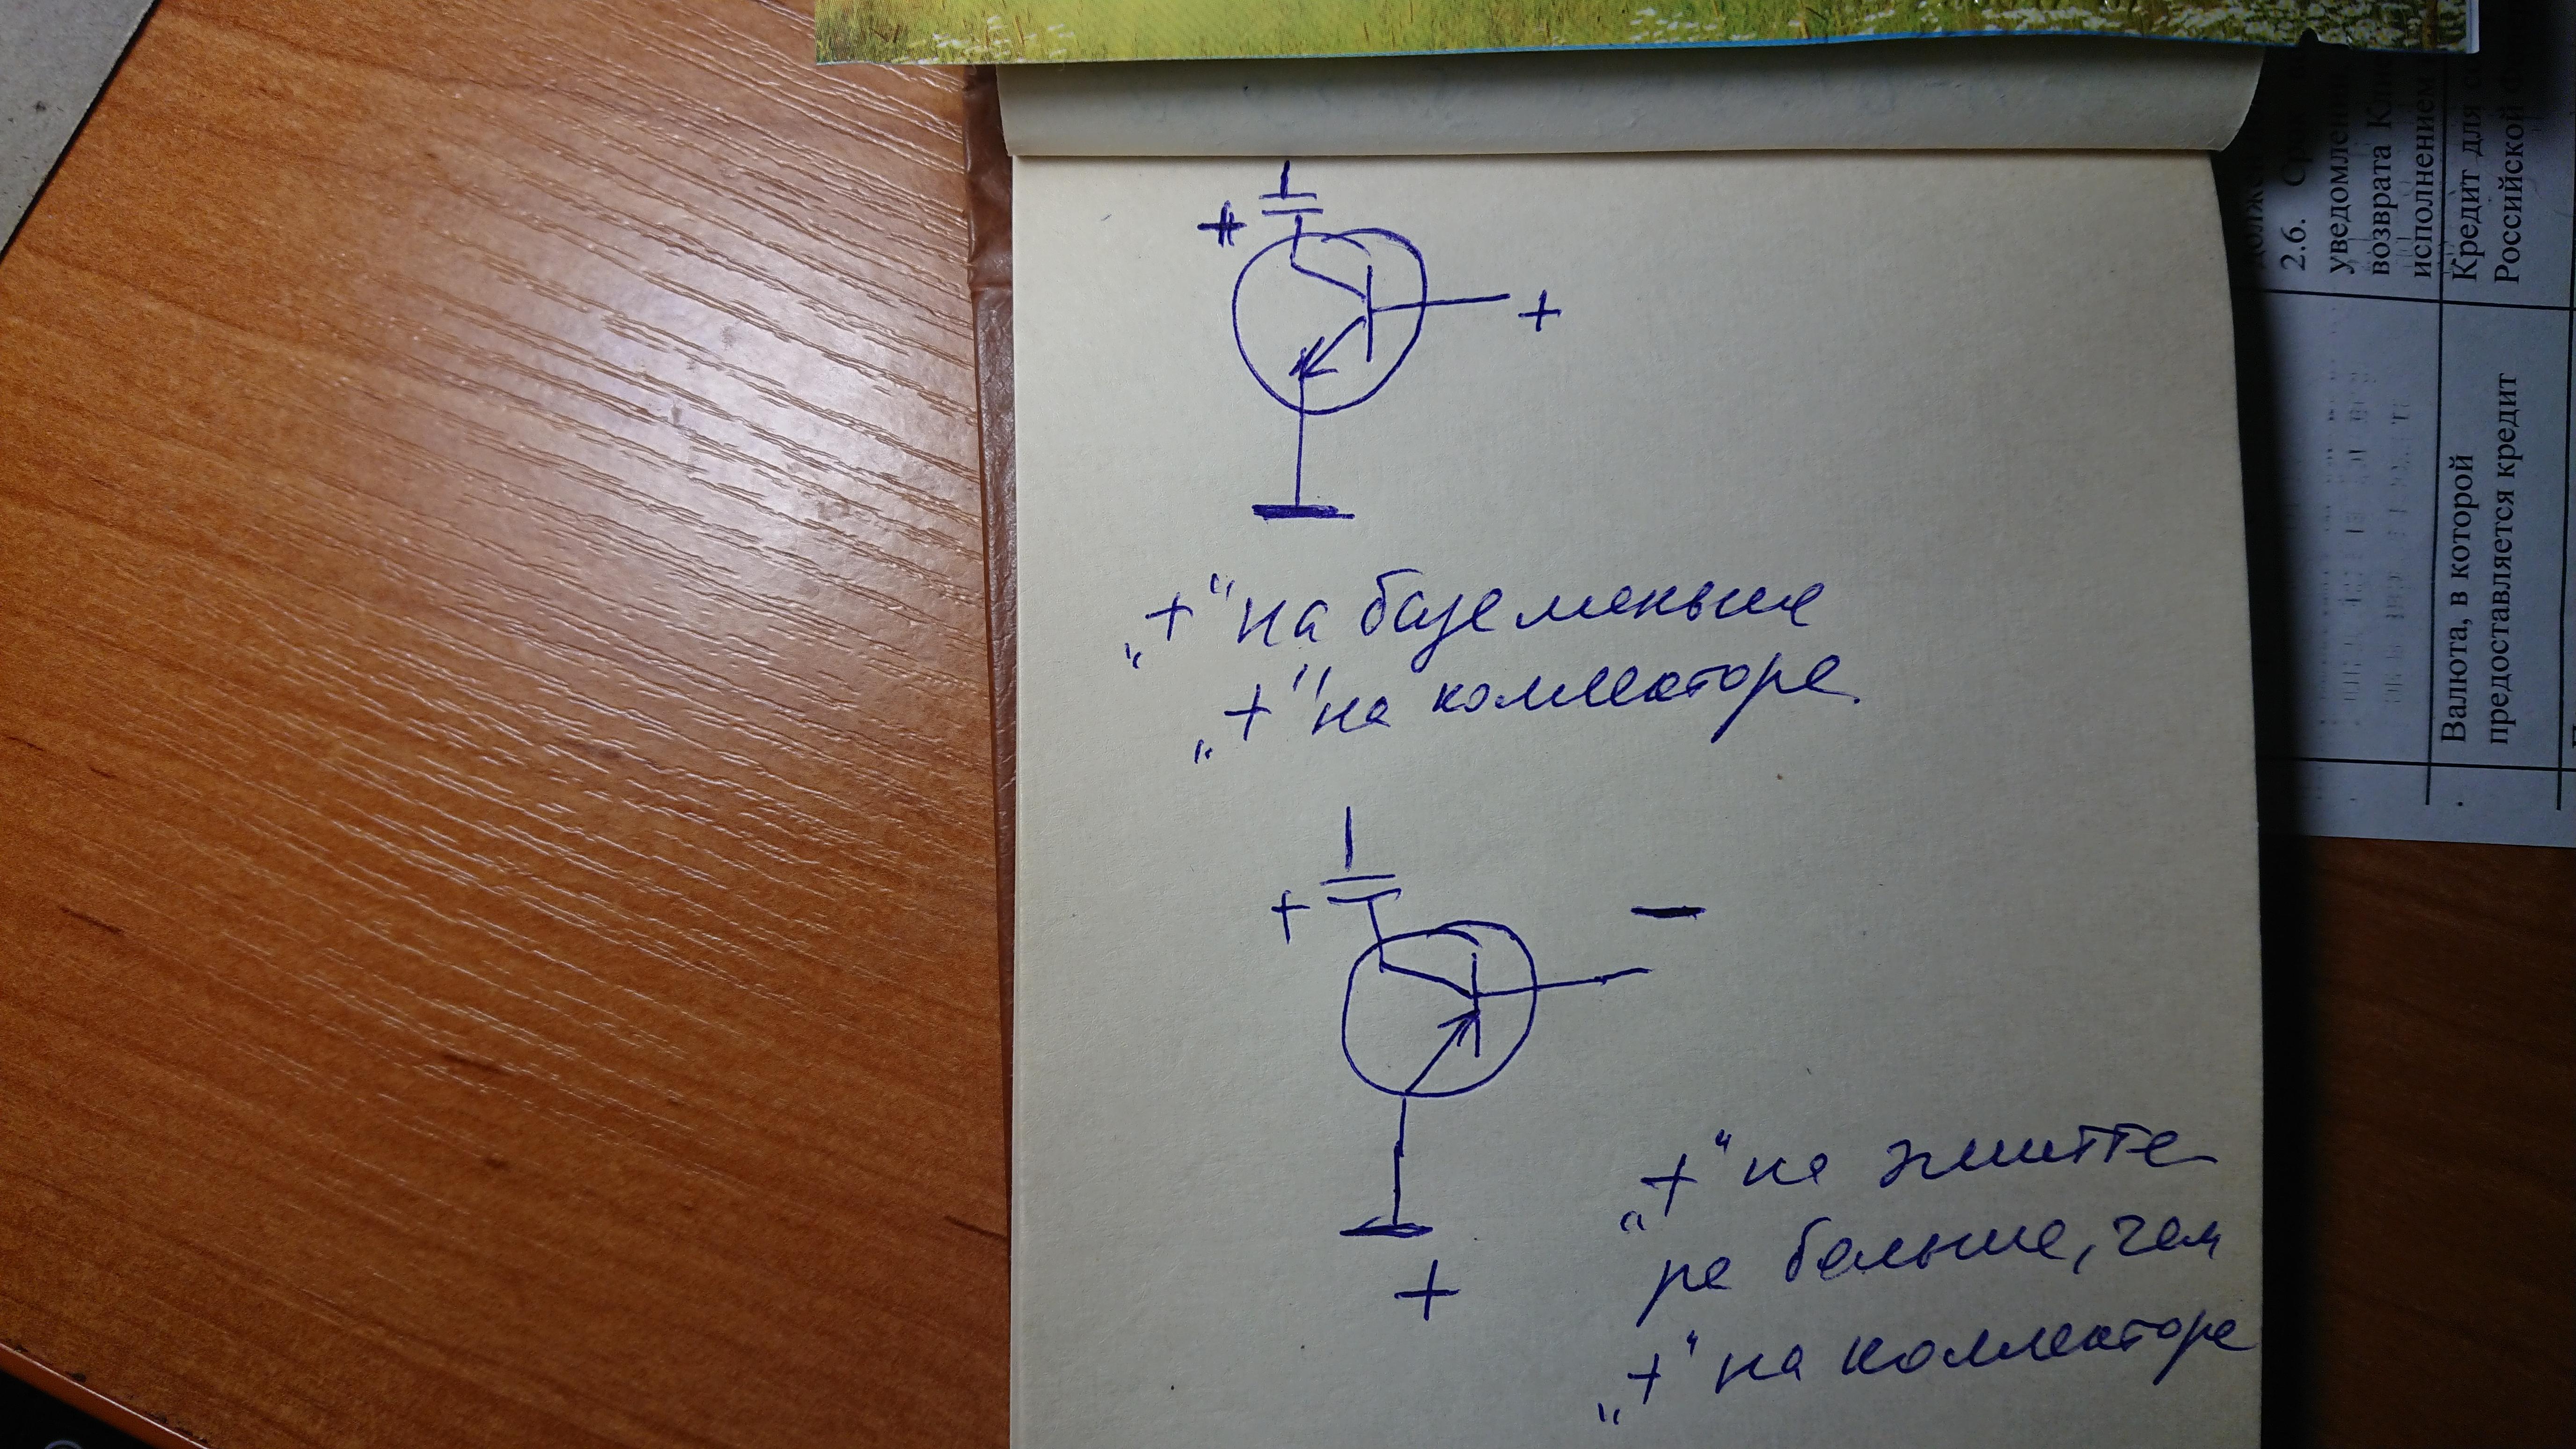 +
+
„+" на базе меньше
„+" на коллекторе.
+
−
+
„+" на эмитте
ре больше, чем
„+" на коллекторе
2.6.
уведомлени
возврата Кли
исполнением
Кредит для
Российской
Валюта, в которой
предоставляется кредит